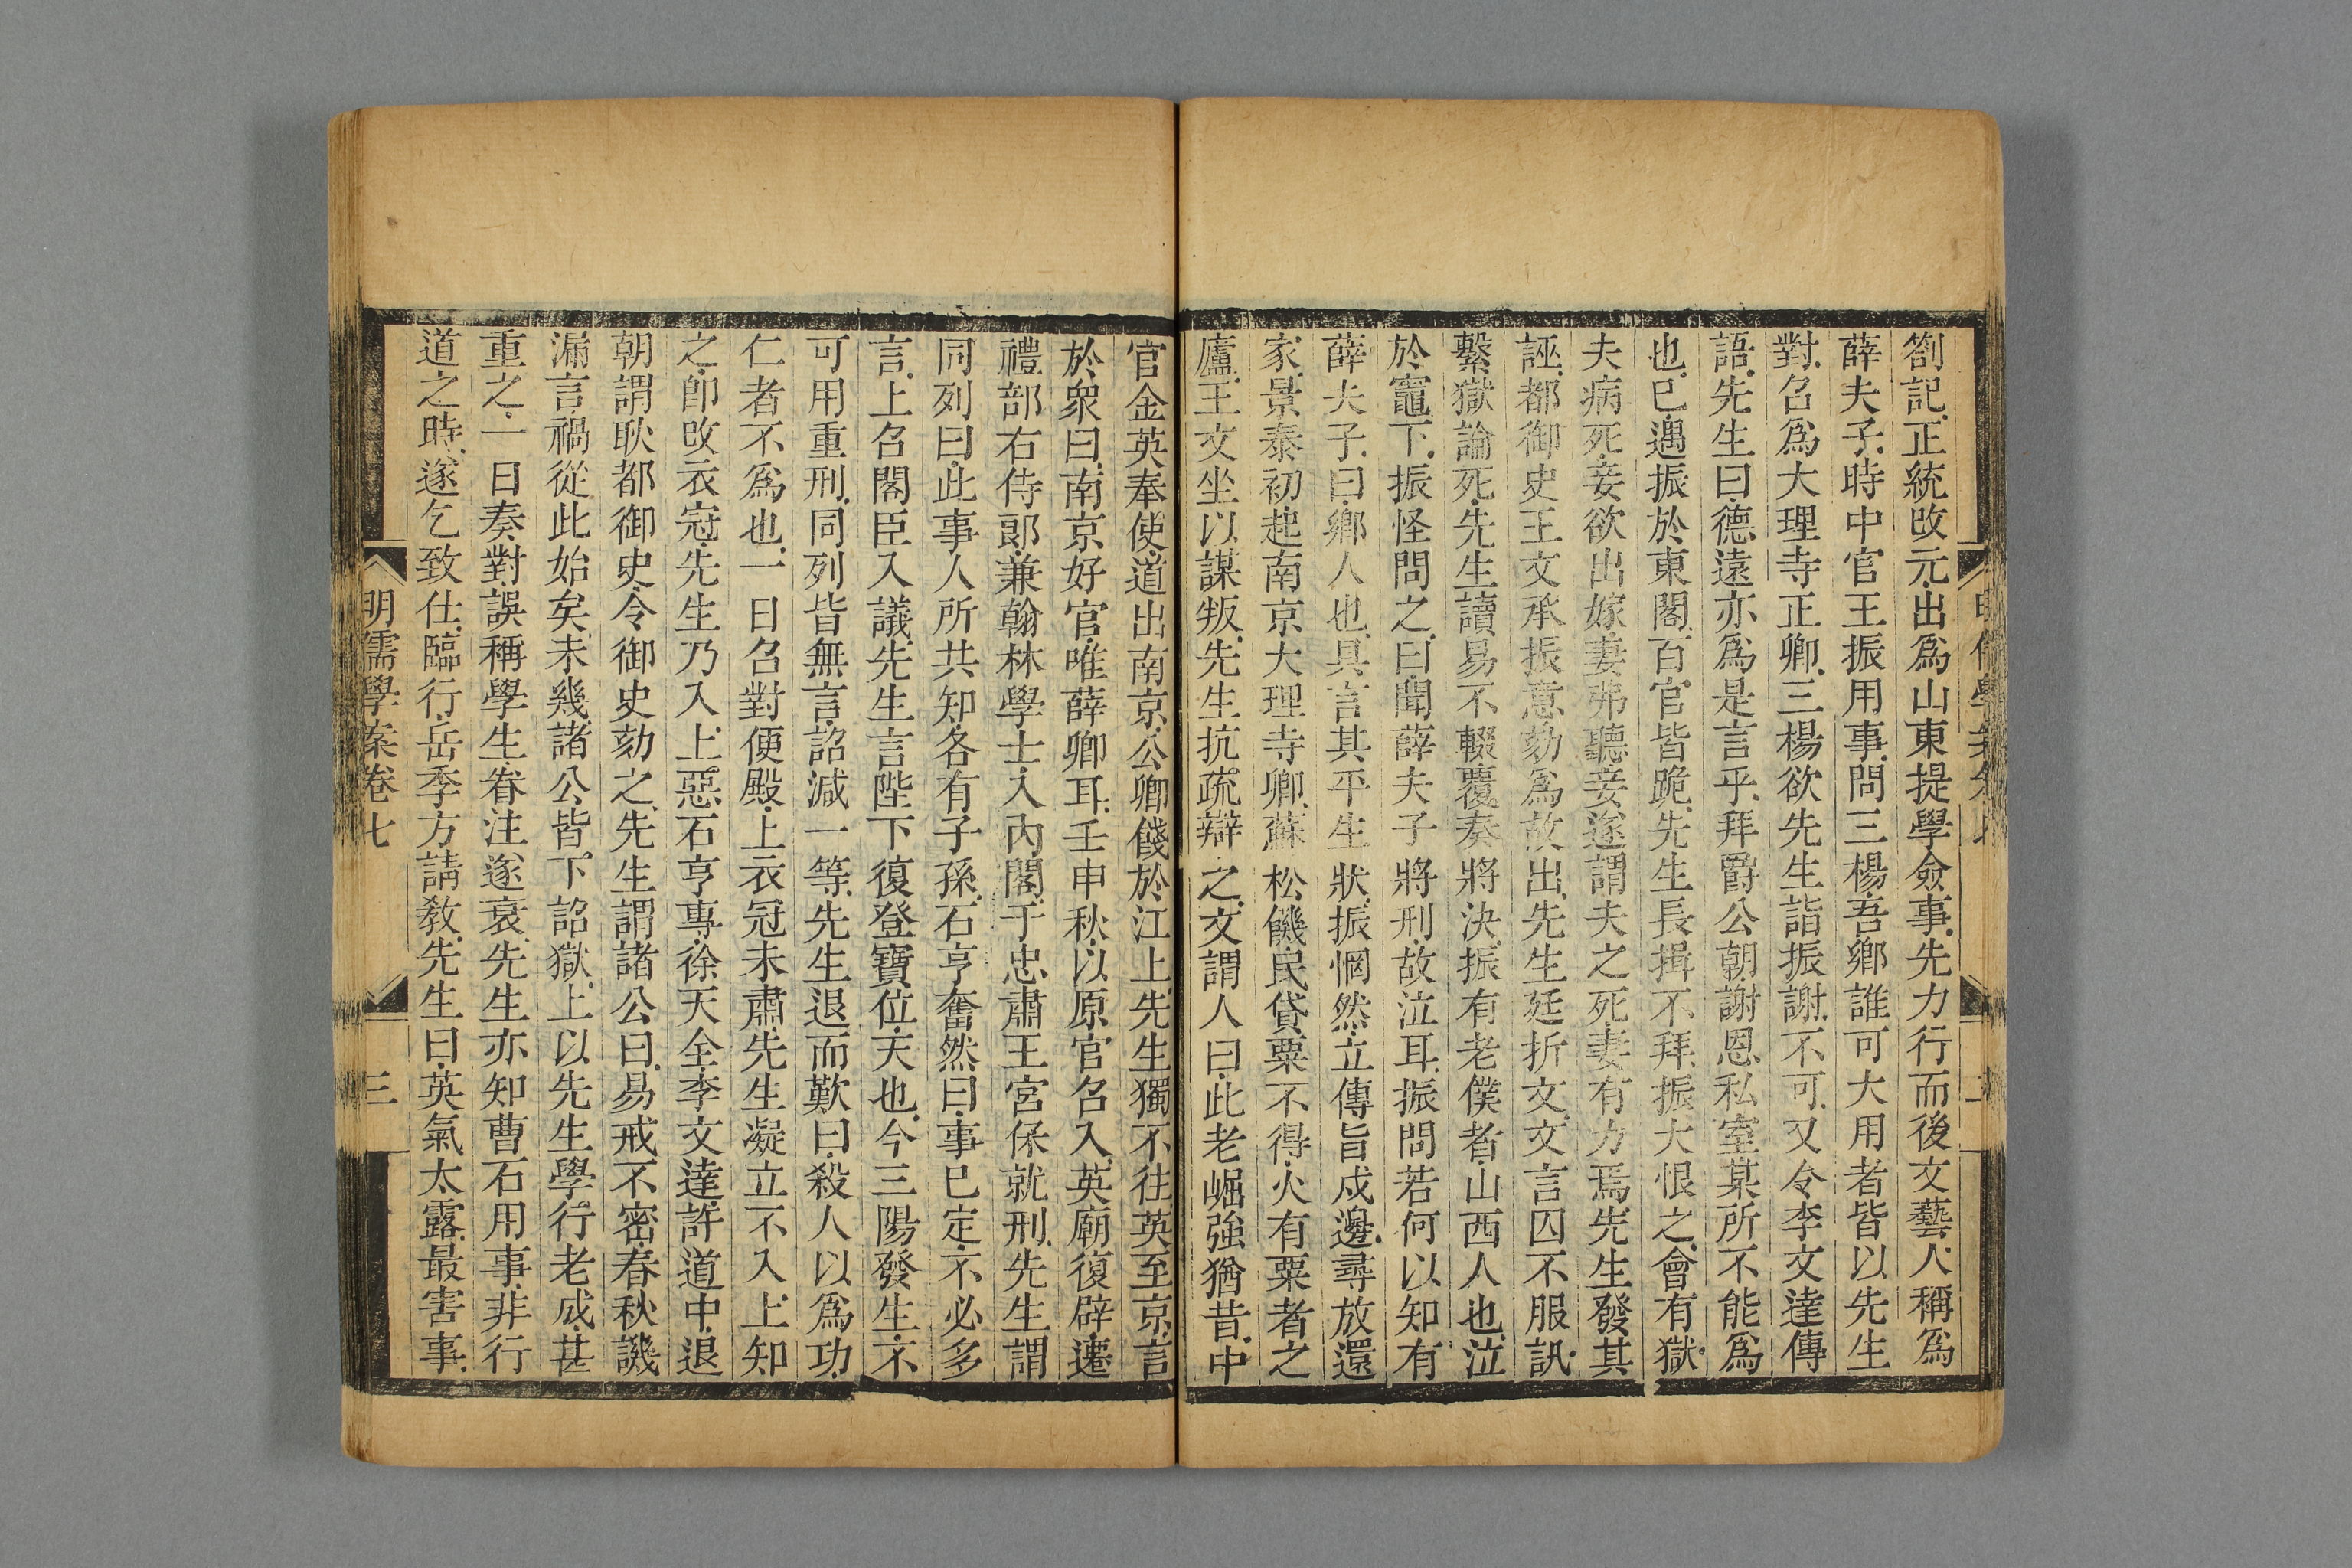 劄記正統改元出為山東提學僉事先力行而後文藝人稱為
薛夫子時中官王振用事問三楊吾鄉誰可大用者皆以先生
對召為大理寺正卿三楊欲先生詣振謝不可又令李文達傳
語先生曰德遠亦為是言乎拜爵公朝謝恩私室某所不能為
也已遇振於東閣百官皆跪先生長揖不拜振大恨之會有獄
夫病死妾欲出嫁妻弗聽妾遂謂夫之死妻有力焉先生發其
誣都御史王文承振意劾為故出先生廷折文文言囚不服訊
繫獄論死先生讀易不輟覆奏將決振有老僕者山西人也泣
於竈下振怪問之曰聞薛夫子將刑故泣耳振問若何以知有
薛夫子曰鄉人也具言其平生狀振惘然立傳旨戍邊尋放還
家景泰初起南京大理寺卿蘇松饑民貸粟不得火有粟者之
廬王文坐以謀叛先生抗疏辯之文謂人曰此老崛強猶昔中
官金英奉使道出南京公卿餞於江上先生獨不往英至京言
於衆曰南京好官唯薛卿耳壬申秋以原官召入英廟復辟遷
禮部右侍郎兼翰林學士入內閣于忠肅王宮保就刑先生謂
同列曰此事人所共知各有子孫石亨奮然曰事已定不必多
言上召閣臣入議先生言陛下復登寶位天也今三陽發生不
可用重刑同列皆無言詔減一等先生退而歎曰殺人以為功
仁者不為也一日召對便殿上衣冠未肅先生凝立不入上知
之卽改衣冠先生乃入上惡石亨專徐天全李文達許道中退
朝謂耿都御史令御史劾之先生謂諸公曰易戒不密春秋譏
漏言禍從此始矣未幾諸公皆下詔獄上以先生學行老成甚
重之一日奏對誤稱學生眷注遂衰先生亦知曹石用事非行
道之時遂乞致仕臨行岳季方請教先生曰英氣太露最害事
明儒學案卷七
三